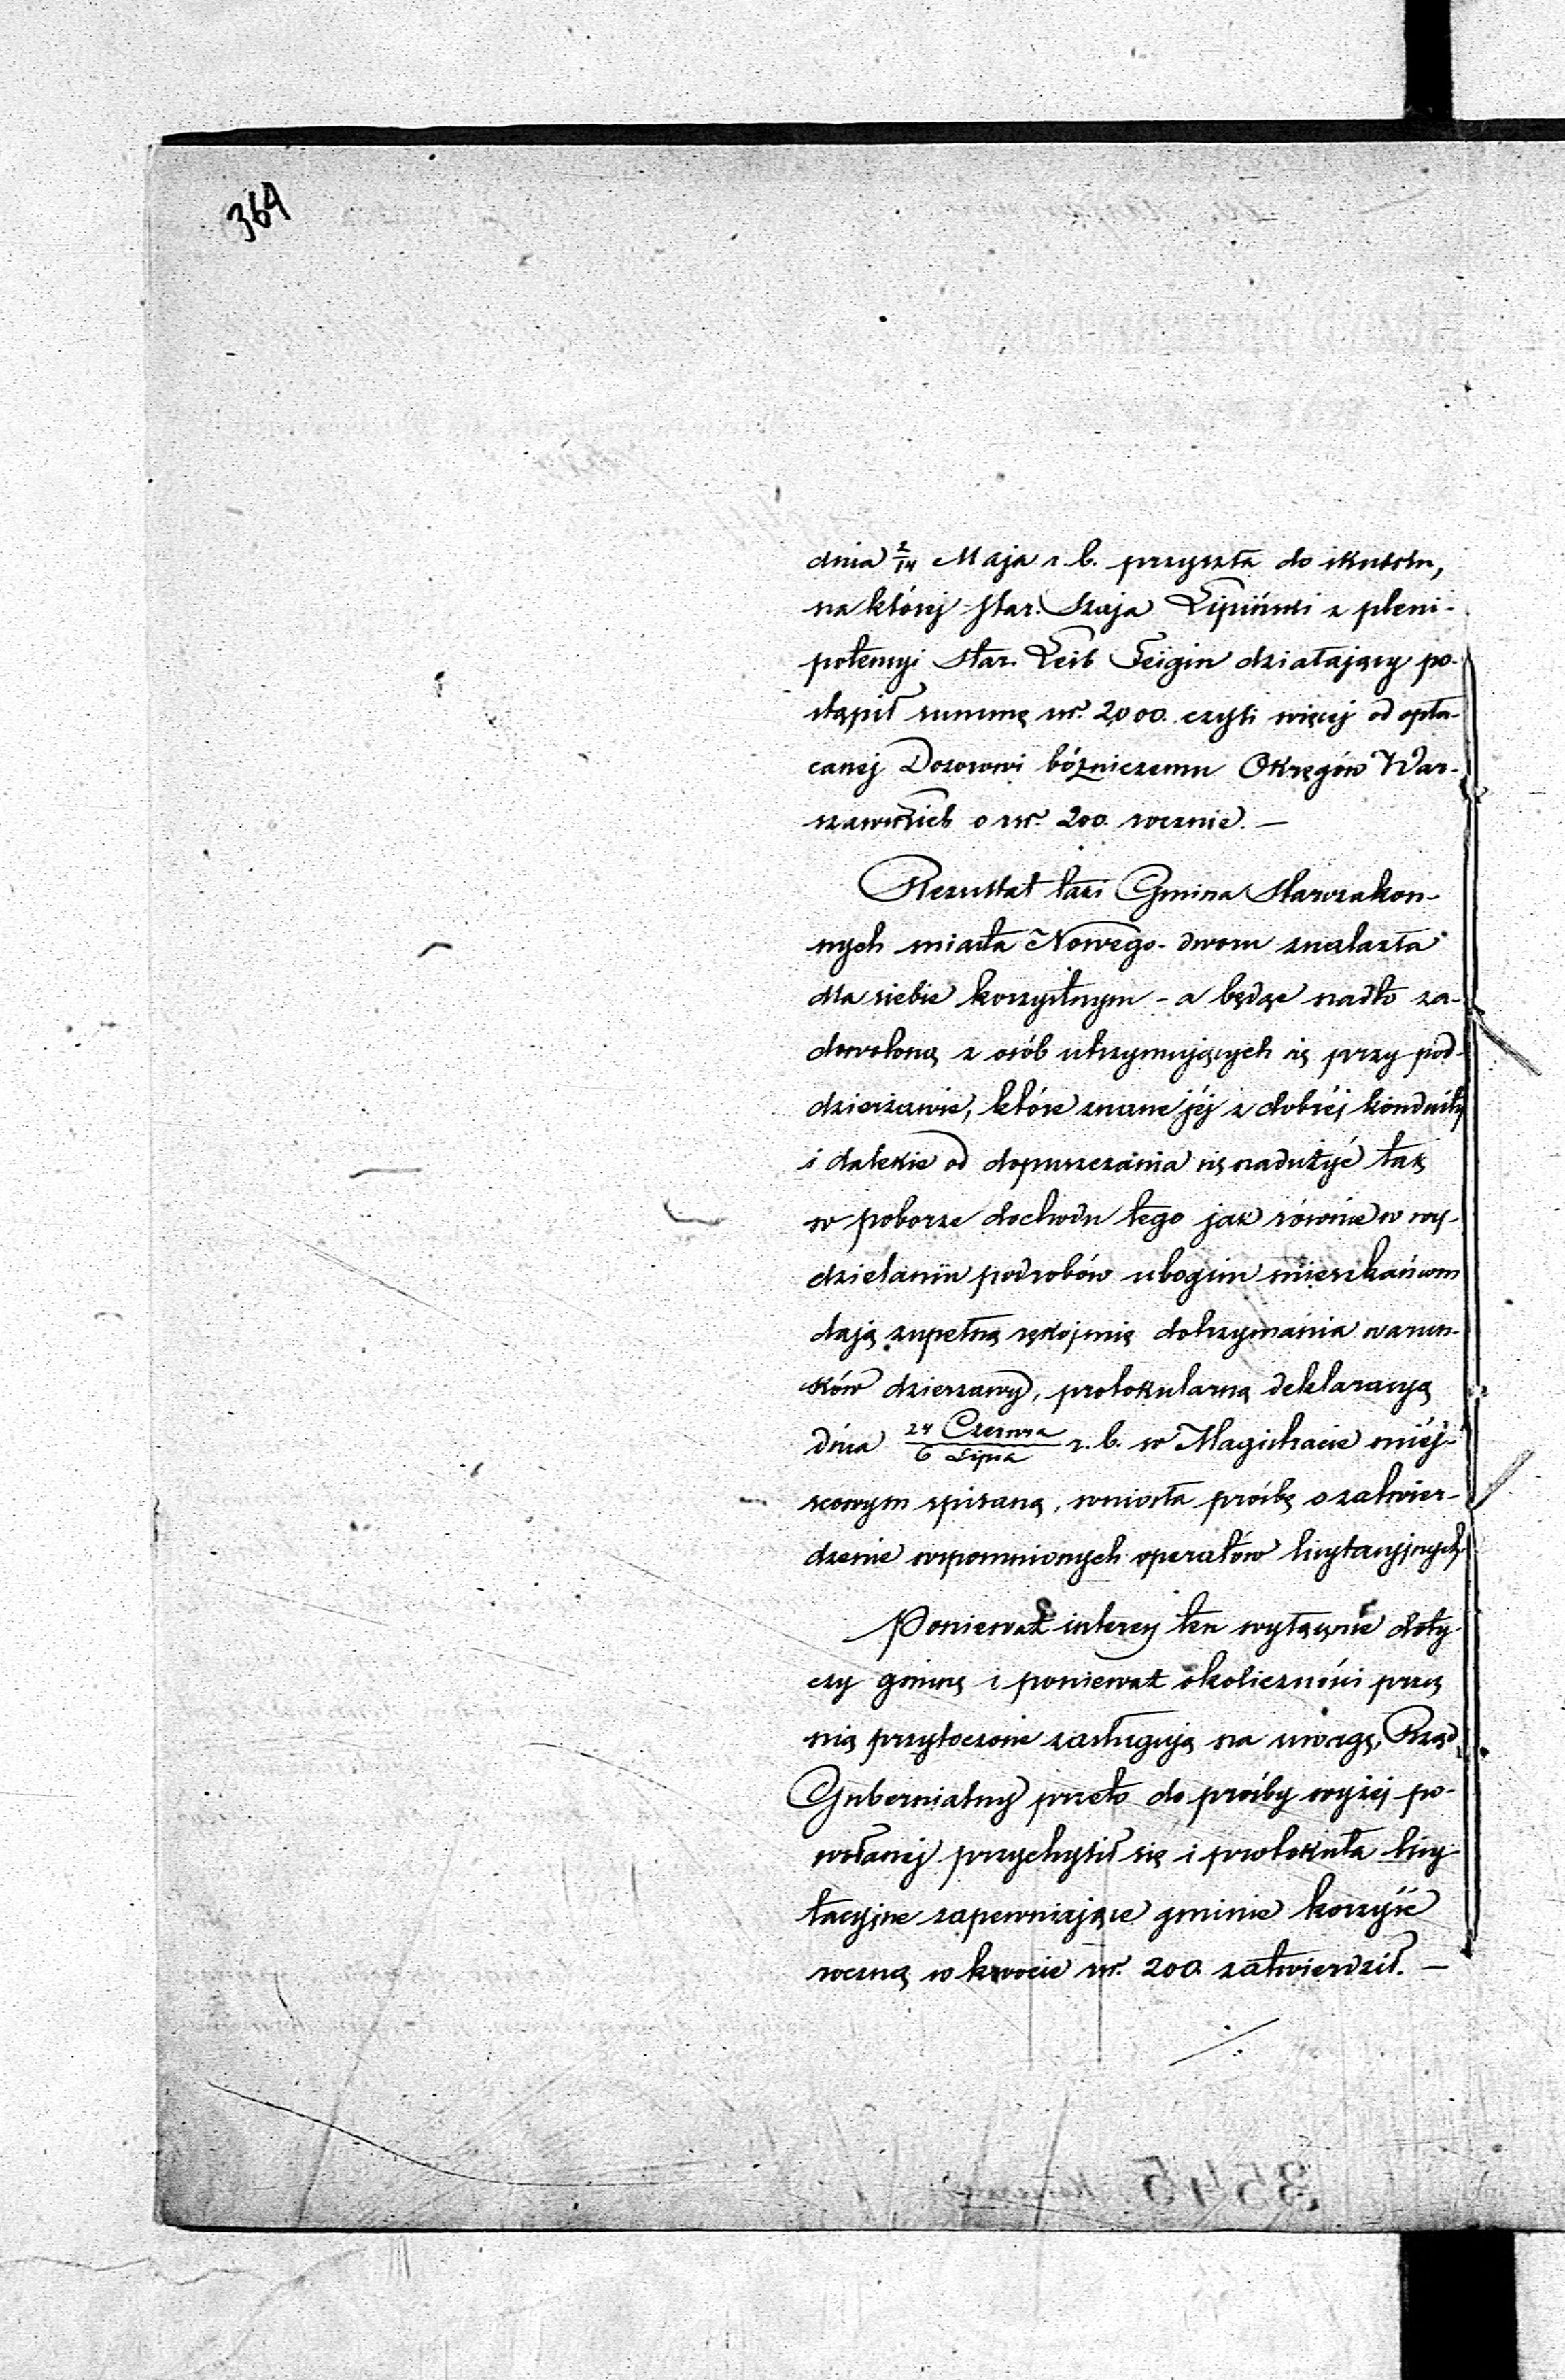 364
dnia 2/14 Maja r. b. przyszła do skutku,
na której Star. Szaja Lipiński z pleni-
potencyi Star. Leib Feigin działający po-
stąpił summę rs. 2000. czyli więcej od opła-
canej Dozorowi bóżniczemu Okręgów War-
szawskich o rs. 200. rocznie. —
Rezultat taki Gmina Starozakon-
nych miasta Nowego-dworu znalazła
dla siebie korzystnym - a będąc nadto za-
dowoloną z osób utrzymujących się przy pod-
dzierżawie, które znane jéj z dobréj konduity
i dalekie od dopuszczania się nadużyć tak
w poborze dochodu tego jak równie w wy-
dzielaniu podrobów ubogim mieszkańcom
dają zupełną rękojmię dotrzymania warun-
ków dzierżawy, protokularną deklaracyą
dnia 24 Czerwca/6 Lipca r. b. w Magistracie miéj-
scowym spisaną, wniosła prośbę o zatwier-
dzenie wspomnionych operatów licytacyjnych.
Ponieważ interes ten wyłącznie doty-
czy gminę i ponieważ okoliczności przez
nią przytoczone zasługują na uwagę, Rząd
Gubernialny przeto do prośby wyżej po-
wołanéj przychylił się i protokuła licy-
tacyjne zapewniające gminie korzyść
roczną w kwocie rs. 200. zatwierdził. —
3545